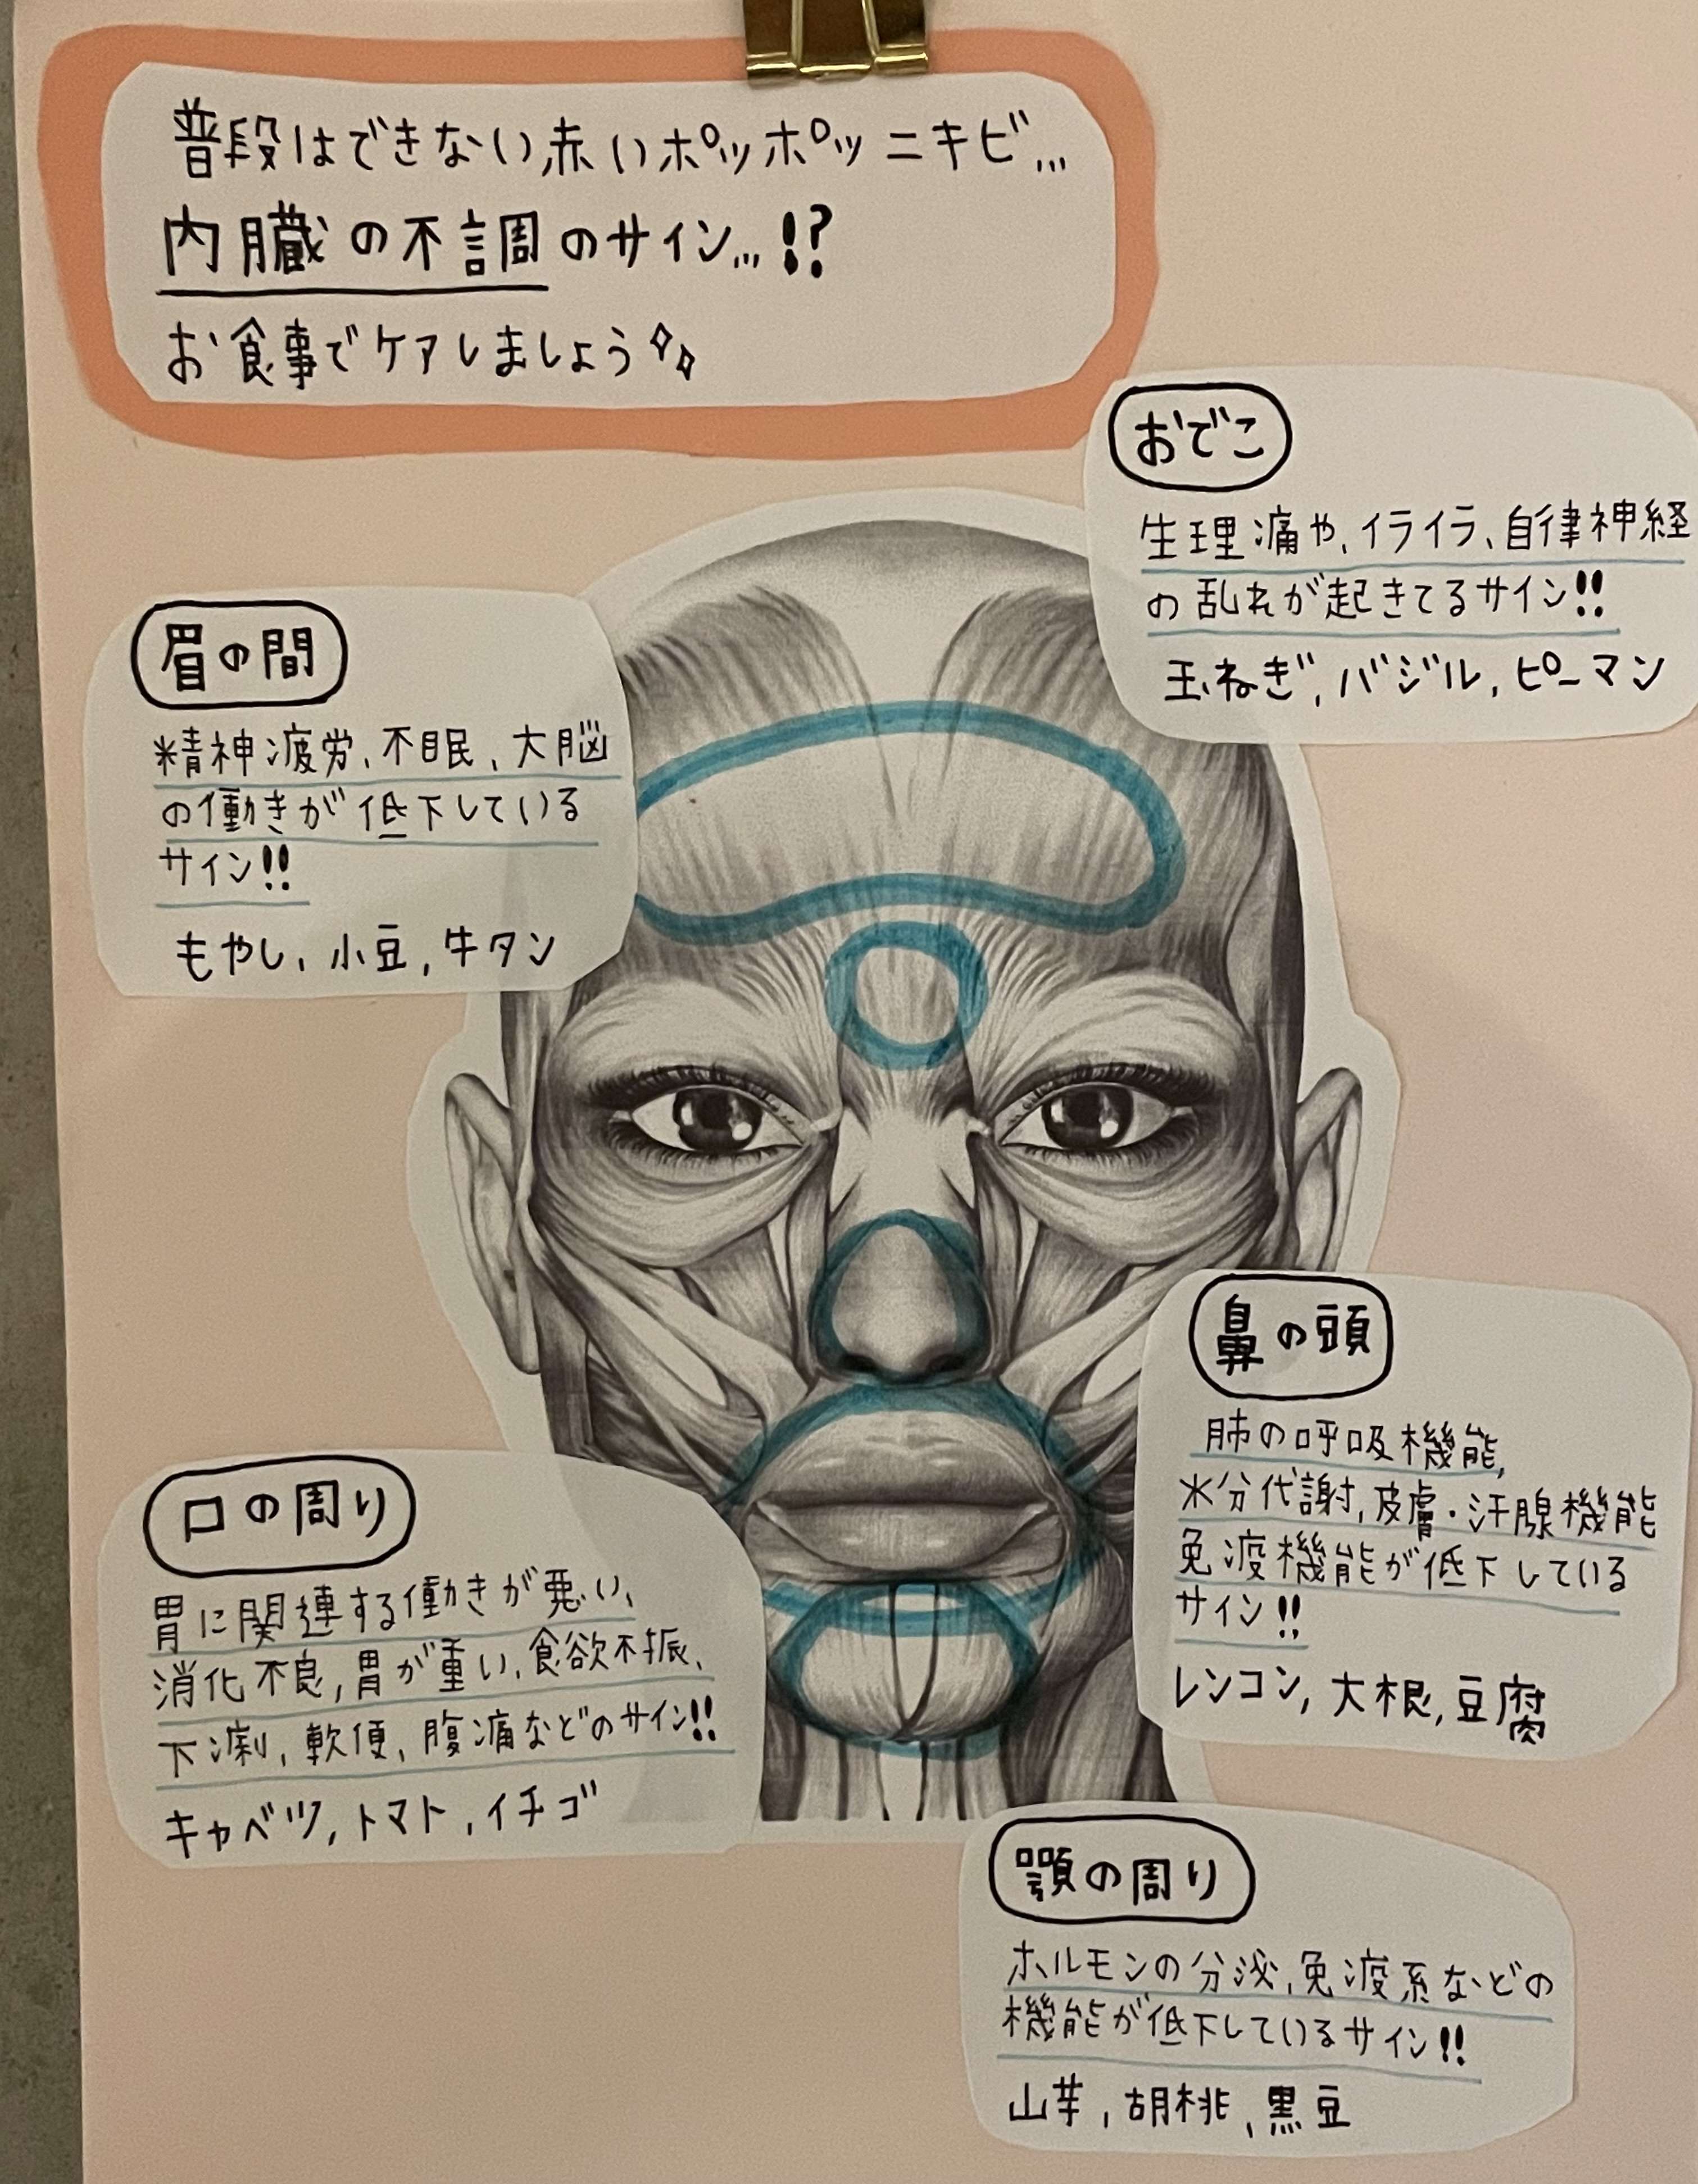 普段はできない赤いポッポッニキビ...
内臓の不調のサイン...!?
お食事でケアしましょう
おでこ
生理痛や、イライラ、自律神経
の乱れが起きてるサイン!!
玉ねぎ、バジル、ピーマン
眉の間
精神疲労、不眠、大脳
の働きが低下している
サイン!!
もやし、小豆、牛タン
鼻の頭
肺の呼吸機能、
水分代謝、皮膚・汗腺機能
免疫機能が低下している
サイン!!
レンコン、大根、豆腐
口の周り
胃に関連する働きが悪い、
消化不良、胃が重い、食欲不振、
下痢、軟便、腹痛などのサイン!!
キャベツ、トマト、イチゴ
顎の周り
ホルモンの分泌、免疫系などの
機能が低下しているサイン!!
山芋、胡桃、黒豆